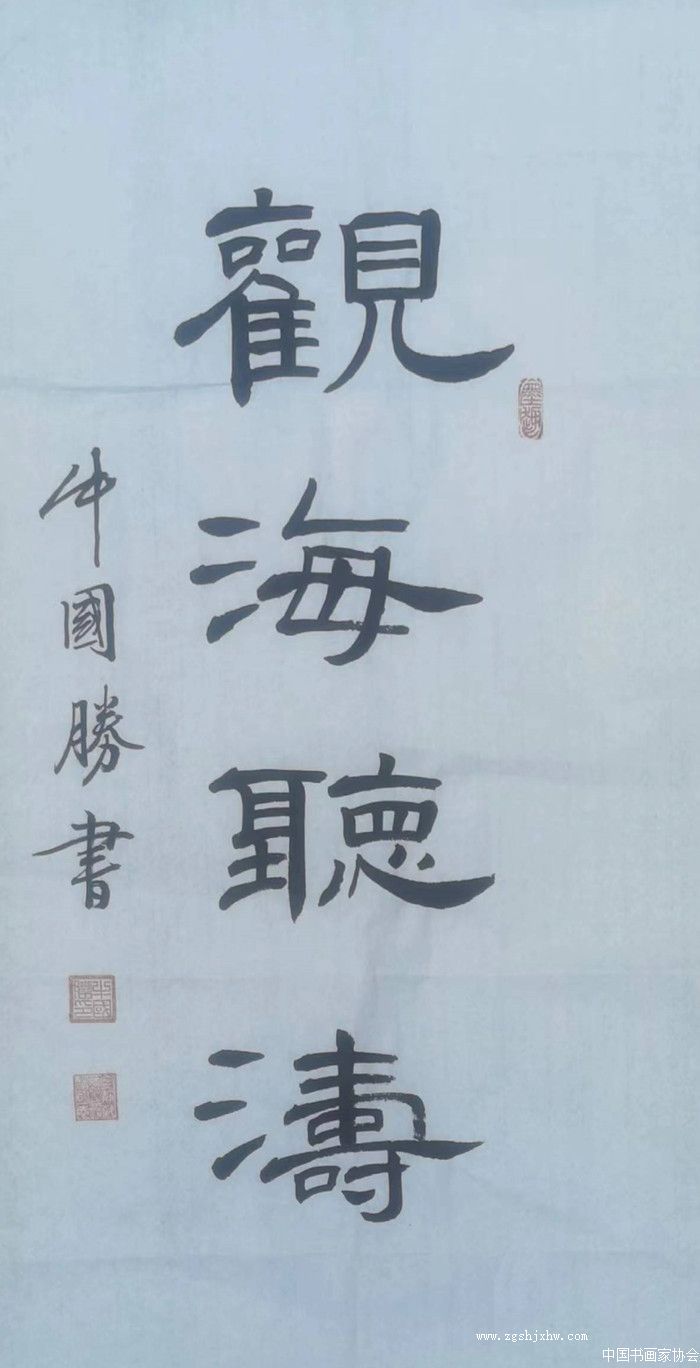 觀海聽濤
牛國勝書
www.zgshjxhw.com
中国书画家协会